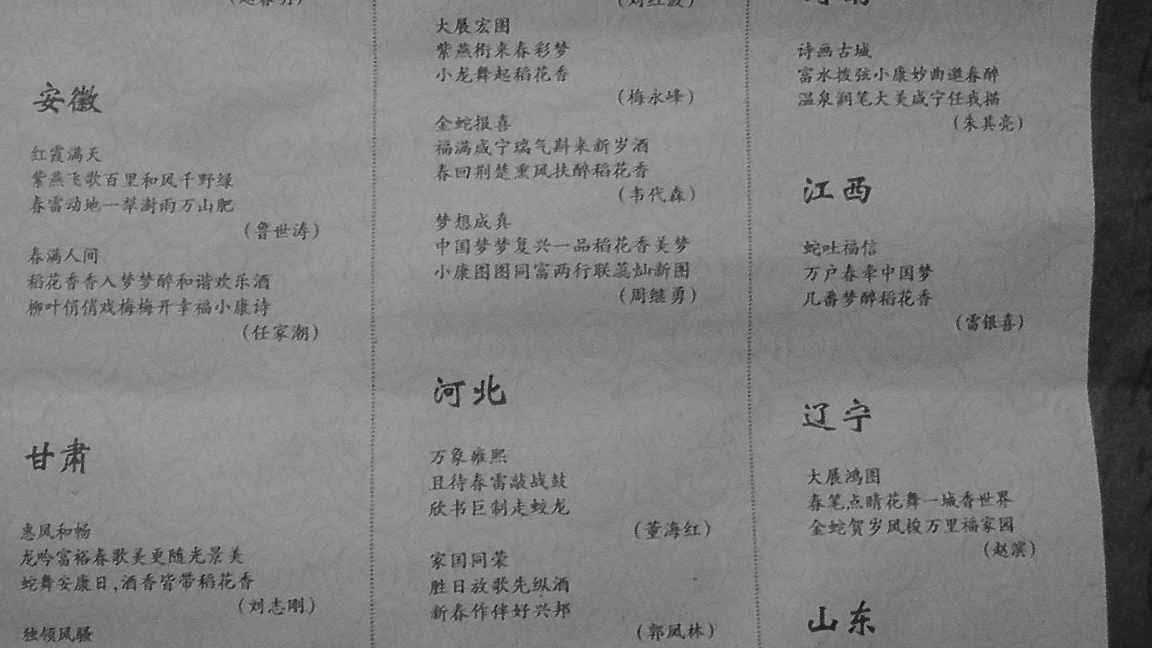 安徽
红霞满天
紫燕飞歌百里和风千野绿
春雷动地一犁澍雨万山肥
(鲁世涛)
春满人间
稻花香香入梦梦醉和谐欢乐酒
柳叶俏俏戏梅梅开幸福小康诗
(任家潮)
甘肃
惠风和畅
龙吟富裕春歌美更随光景美
蛇舞安康日,酒香皆带稻花香
(刘志刚)
独领风骚
大展宏图
紫燕衔来春彩梦
小龙舞起稻花香
(梅永峰)
金蛇报喜
福满咸宁瑞气斟来新岁酒
春回荆楚熏风扶醉稻花香
(韦代森)
梦想成真
中国梦梦复兴一品稻花香美梦
小康图图同富两行联蕊灿新图
(周继勇)
河北
万象雍熙
且待春雷敲战鼓
欣书巨制走蛟龙
(董海红)
家国同荣
胜日放歌先纵酒
新春作伴好兴邦
(郭凤林)
诗画古城
富水拨弦小康妙曲邀春醉
温泉润笔大美咸宁任我描
(朱其亮)
江西
蛇吐福信
万户春牵中国梦
几番梦醉稻花香
(雷银喜)
辽宁
大展鸿图
春笔点睛花舞一城香世界
金蛇贺岁风梭万里福家园
(赵滨)
山东